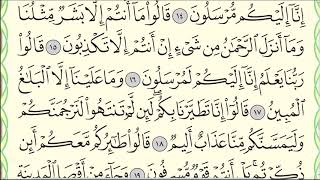 إِنَّآ إِلَيْكُم مُّرْسَلُونَ ١٤ قَالُوا۟ مَآ أَنتُمْ إِلَّا بَشَرٌ مِّثْلُنَا
وَمَآ أَنزَلَ ٱلرَّحْمَٰنُ مِن شَىْءٍ إِنْ أَنتُمْ إِلَّا تَكْذِبُونَ ١٥ قَالُوا۟
رَبُّنَا يَعْلَمُ إِنَّآ إِلَيْكُمْ لَمُرْسَلُونَ ١٦ وَمَا عَلَيْنَآ إِلَّا ٱلْبَلَٰغُ
ٱلْمُبِينُ ١٧ قَالُوٓا۟ إِنَّا تَطَيَّرْنَا بِكُمْ لَئِن لَّمْ تَنتَهُوا۟ لَنَرْجُمَنَّكُمْ
وَلَيَمَسَّنَّكُم مِّنَّا عَذَابٌ أَلِيمٌ ١٨ قَالُوا۟ طَٰٓئِرُكُم مَّعَكُمْ أَئِن
ذُكِّرْتُم بَلْ أَنتُمْ قَوْمٌ مُّسْرِفُونَ ١٩ وَجَآءَ مِنْ أَقْصَا ٱلْمَدِينَةِ